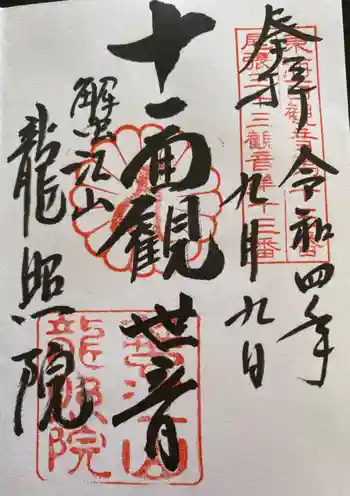 奉拝 令和四年
九月九日
尾張三十三観音第十三番
十一面観世音
蟹江山
龍照院
蟹江山
龍照院